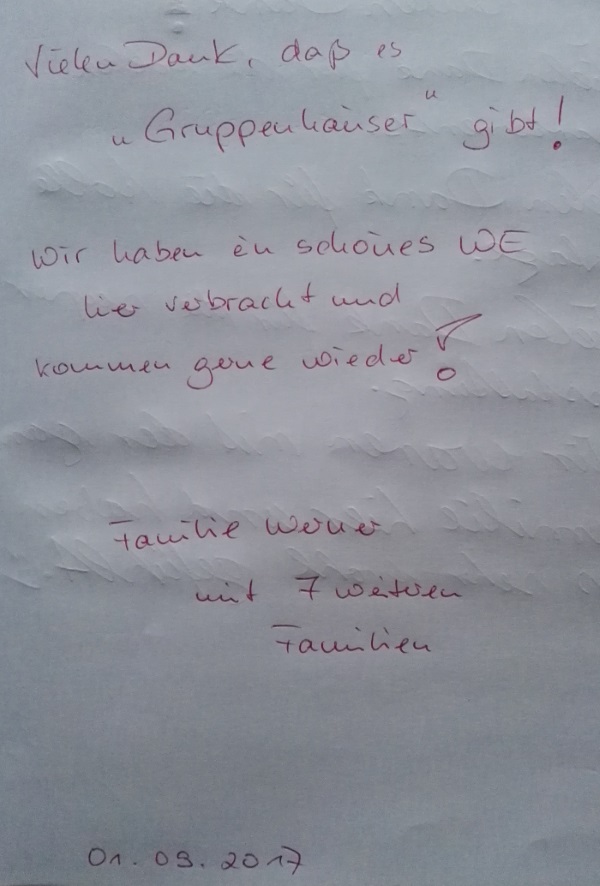 Vielen Dank, daß es
„Gruppenhäuser" gibt!
Wir haben ein schönes WE
hier verbracht und
kommen gerne wieder!
Familie Werner
mit 7 weiteren
Familien
01.09.2017